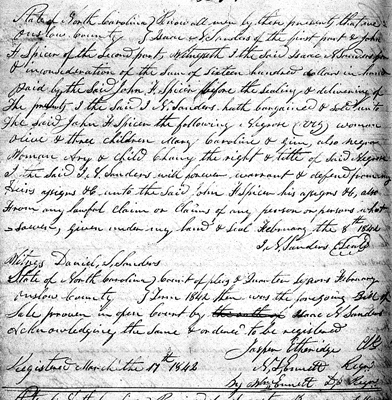 State of North Carolina } Know all men by these presents that
Onslow County } Isaac N Sanders of the first part & John
H Spicer of the second part, Witnesseth I the said Isaac N Sanders for
& in consideration of the sum of sixteen hundred dollars in hand
paid by the said John H Spicer before the sealing & delivering of
the presents I the said I N. Sanders hath bargained & sold unto
the said John H Spicer the following Negroes (viz) woman
& three children Mary Caroline & also negro
Woman Amy & child the right & title of said Negroes
I the said I N Sanders will forever warrant & defend from my
Heirs assigns &c unto the said John H Spicer his assigns &c, also
from any lawful claim or claims of any person or persons what
soever, given under my hand & seal February the 8th 1844
I. N. Sanders (Seal)
Witness Daniel S. Sanders
State of North Carolina } Court of pleas & Quarter Sessions February
Onslow County } Term 1844 then was the foregoing Bill
Sale proven in open Court by Isaac N Sanders
acknowledging the same & ordered to be registered
Jasper Etheridge Clk
Registered March the 17th 1844